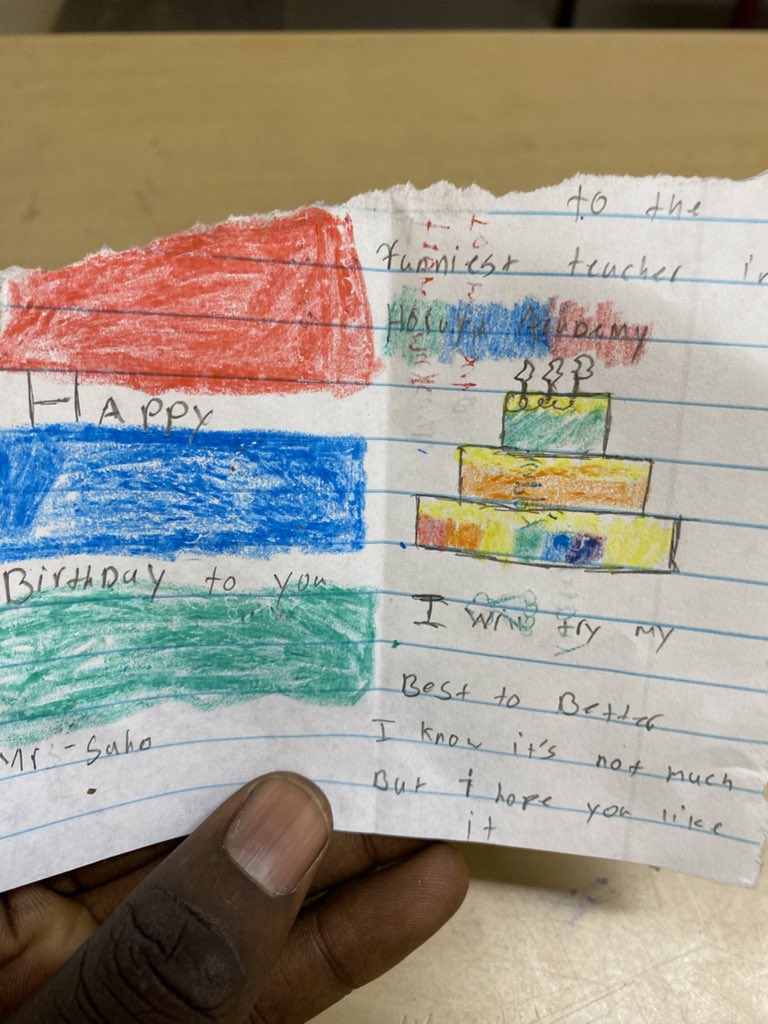 HAPPY
BirthDay to you
Mr - Saho
to the
Funniest teacher in
Academy
I try my
Best to Better
I know it's not much
But I hope you like
it